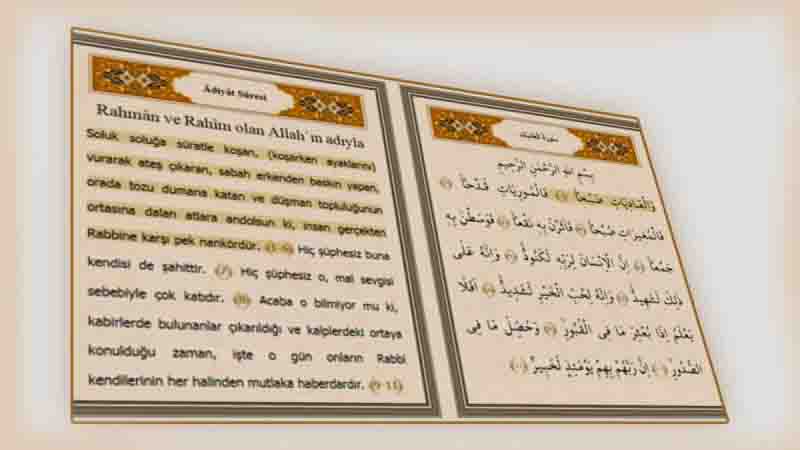 Âdiyât Sûresi
Rahmân ve Rahîm olan Allah'ın adıyla
Soluk soluğa süratle koşan, (koşarken ayaklarını)
vurarak ateş çıkaran, sabah erkenden baskın yapan,
orada tozu dumana katan ve düşman topluluğunun
ortasına dalan atlara andolsun ki, insan gerçekten
Rabbine karşı pek nankördür. (1-6) Hiç şüphesiz buna
kendisi de şahittir. (7) Hiç şüphesiz o, mal sevgisi
sebebiyle çok katıdır. (8) Acaba o bilmiyor mu ki,
kabirlerde bulunanlar çıkarıldığı ve kalplerdeki ortaya
konulduğu zaman, işte o gün onların Rabbi
kendilerinin her halinden mutlaka haberdardır. (9-11)
سورة العاديات
بِسْمِ اللهِ الرَّحْمٰنِ الرَّحِيمِ
وَالْعَادِيَاتِ ضَبْحاًۙ فَالْمُورِيَاتِ قَدْحاًۙ
فَالْمُغِيرَاتِ صُبْحاًۙ فَاَثَرْنَ بِهِ نَقْعاًۙ فَوَسَطْنَ بِهِ
جَمْعاًۙ اِنَّ الْاِنْسَانَ لِرَبِّهِ لَكَنُودٌۚ وَاِنَّهُ عَلٰى
ذٰلِكَ لَشَهِيدٌۚ وَاِنَّهُ لِحُبِّ الْخَيْرِ لَشَدِيدٌۜ اَفَلَا
يَعْلَمُ اِذَا بُعْثِرَ مَا فِي الْقُبُورِۙ وَحُصِّلَ مَا فِي
الصُّدُورِۙ اِنَّ رَبَّهُمْ بِهِمْ يَوْمَئِذٍ لَخَبِيرٌ